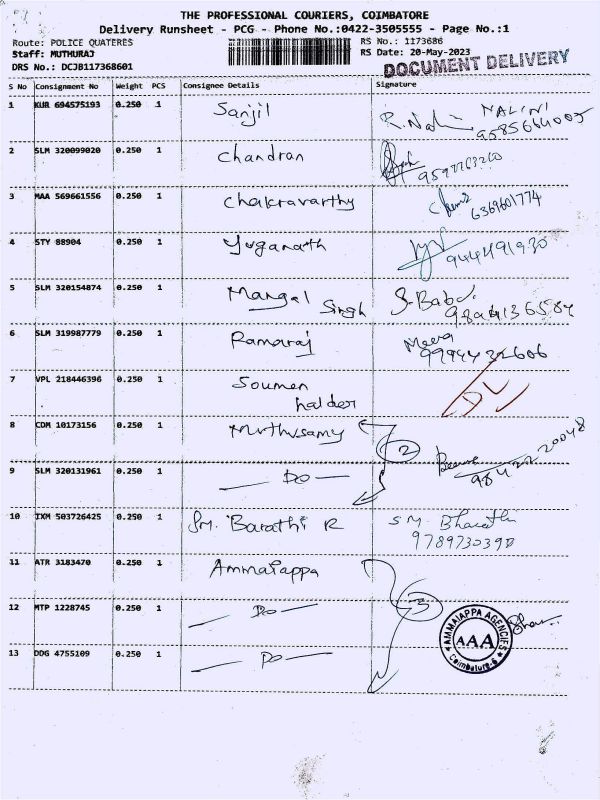 THE PROFESSIONAL COURIERS, COIMBATORE
Delivery Runsheet - PCG - Phone No.:0422-3505555 - Page No.:1
Route: POLICE QUATERES RS No.: 1173686
Staff: MUTHURAJ RS Date: 20-May-2023
DRS No.: DCJB117368601 DOCUMENT DELIVERY
S No Consignment No Weight PCS Consignee Details Signature
1 KUR 694575193 0.250 1 Sanjil R. NALINI
9585664005
2 SLM 320099020 0.250 1 Chandran
3 MAA 569661556 0.250 1 Chakravarthy
6369601774
4 STY 88904 0.250 1 Yoganath
5 SLM 320154874 0.250 1 Mangal Singh S. Babu
6 SLM 319987779 0.250 1 Ramaraj Meera
7 VPL 218446396 0.250 1 Soumen halder DL
8 COM 10173156 0.250 1 Muthusamy 2
9842220048
9 SLM 320131961 0.250 1 — DO —
10 IXM 503726425 0.250 1 SM. Barathi R SM Bharathi
11 ATR 3183470 0.250 1 Ammaiappa
12 MTP 1228745 0.250 1 — DO — 3
13 DDG 4755109 0.250 1 — DO —
AMMAIAPPA AGENCIES
AAA
Coimbatore-6